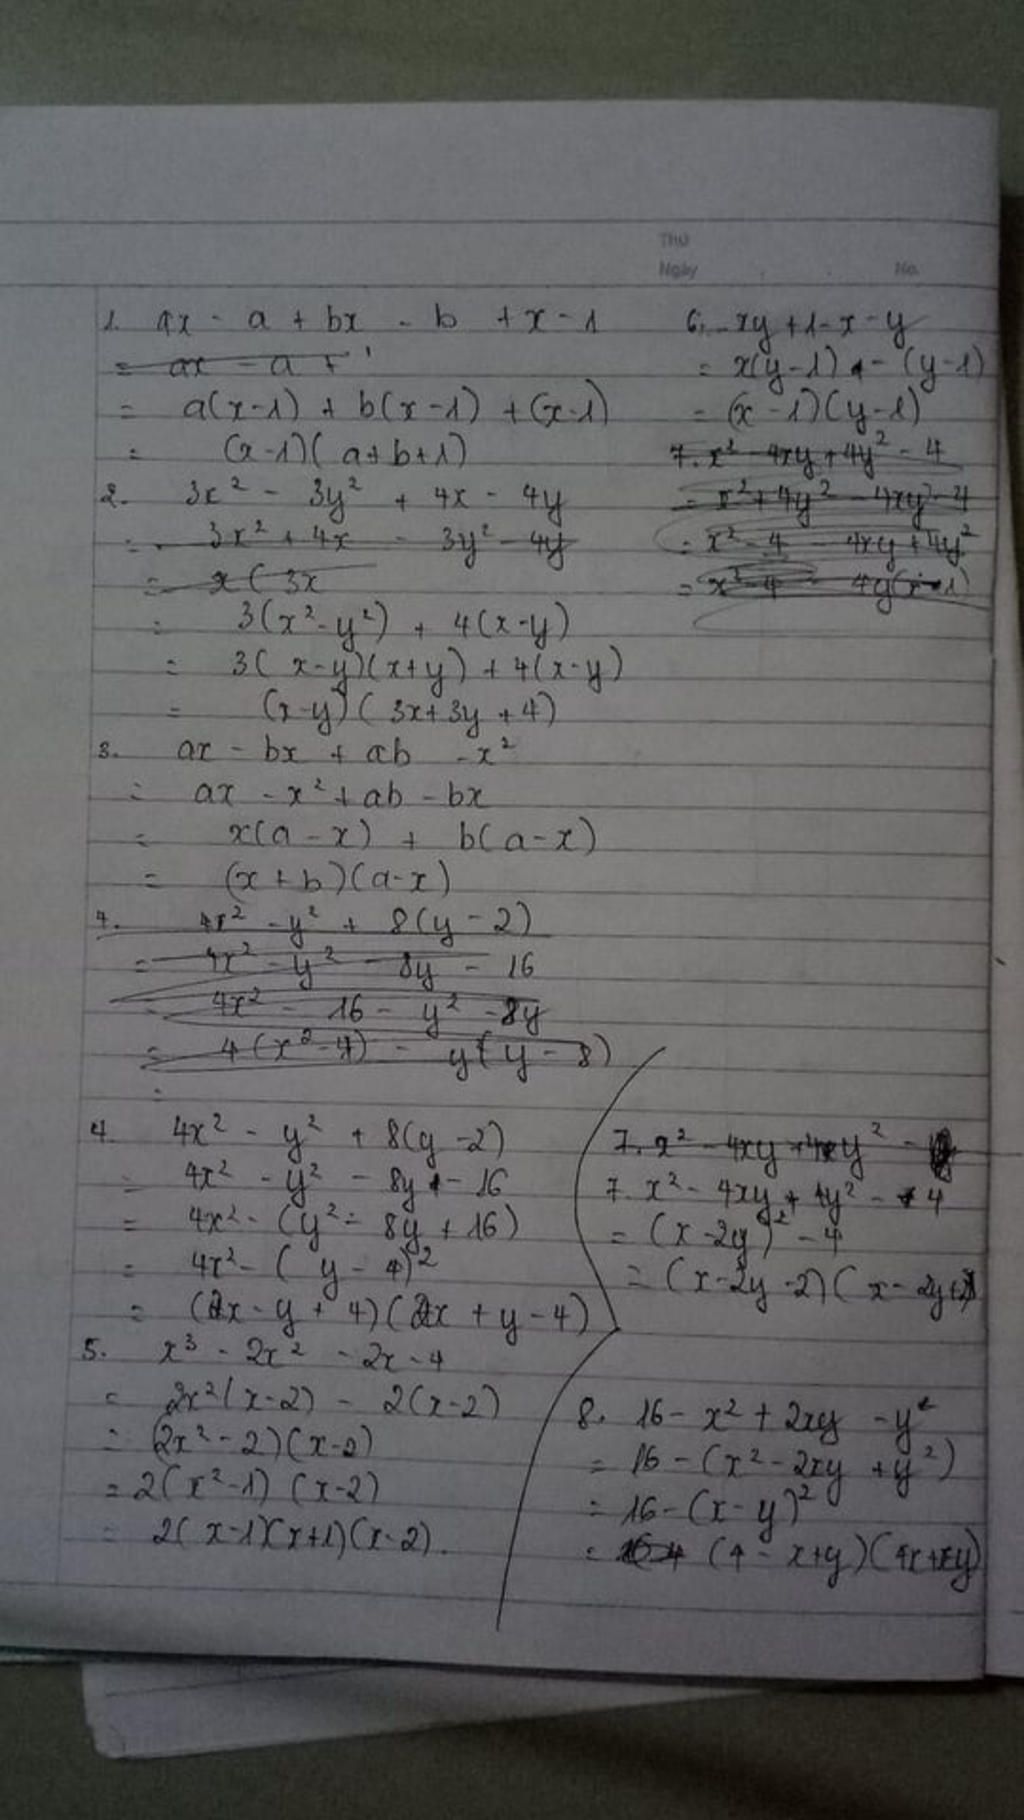 Thứ
Ngày No.
1. ax - a + bx - b + x - 1
= ax - a +
= a(x-1) + b(x-1) + (x-1)
= (x-1)(a+b+1)
2. 3x² - 3y² + 4x - 4y
= 3x² + 4x - 3y² - 4y
= x(3x
= 3(x²-y²) + 4(x-y)
= 3(x-y)(x+y) + 4(x-y)
= (x-y)(3x+3y+4)
3. ax - bx + ab - x²
= ax - x² + ab - bx
= x(a-x) + b(a-x)
= (x+b)(a-x)
4. 4x² - y² + 8(y-2)
= 4x² - y² - 8y - 16
= 4x² - 16 - y² - 8y
= 4(x²-4) - y(y-8)
=
4. 4x² - y² + 8(y-2)
= 4x² - y² - 8y - 16
= 4x² - (y² - 8y + 16)
= 4x² - (y-4)²
= (2x - y + 4)(2x + y - 4)
5. x³ - 2x² - 2x - 4
= 2x²(x-2) - 2(x-2)
= (2x²-2)(x-2)
= 2(x²-1)(x-2)
= 2(x-1)(x+1)(x-2).
6. xy + 1 - x - y
= x(y-1) - (y-1)
= (x-1)(y-1)
7. x² - 4xy + 4y² - 4
= x² + 4y² - 4xy - 4
= x² - 4 - 4xy + 4y²
= x² - 4 - 4y(x-1)
7. x² - 4xy + 4y² -
7. x² - 4xy + 4y² - 4
= (x-2y)² - 4
= (x-2y-2)(x-2y+2)
8. 16 - x² + 2xy - y²
= 16 - (x² - 2xy + y²)
= 16 - (x-y)²
= (4 - x+y)(4+x-y)